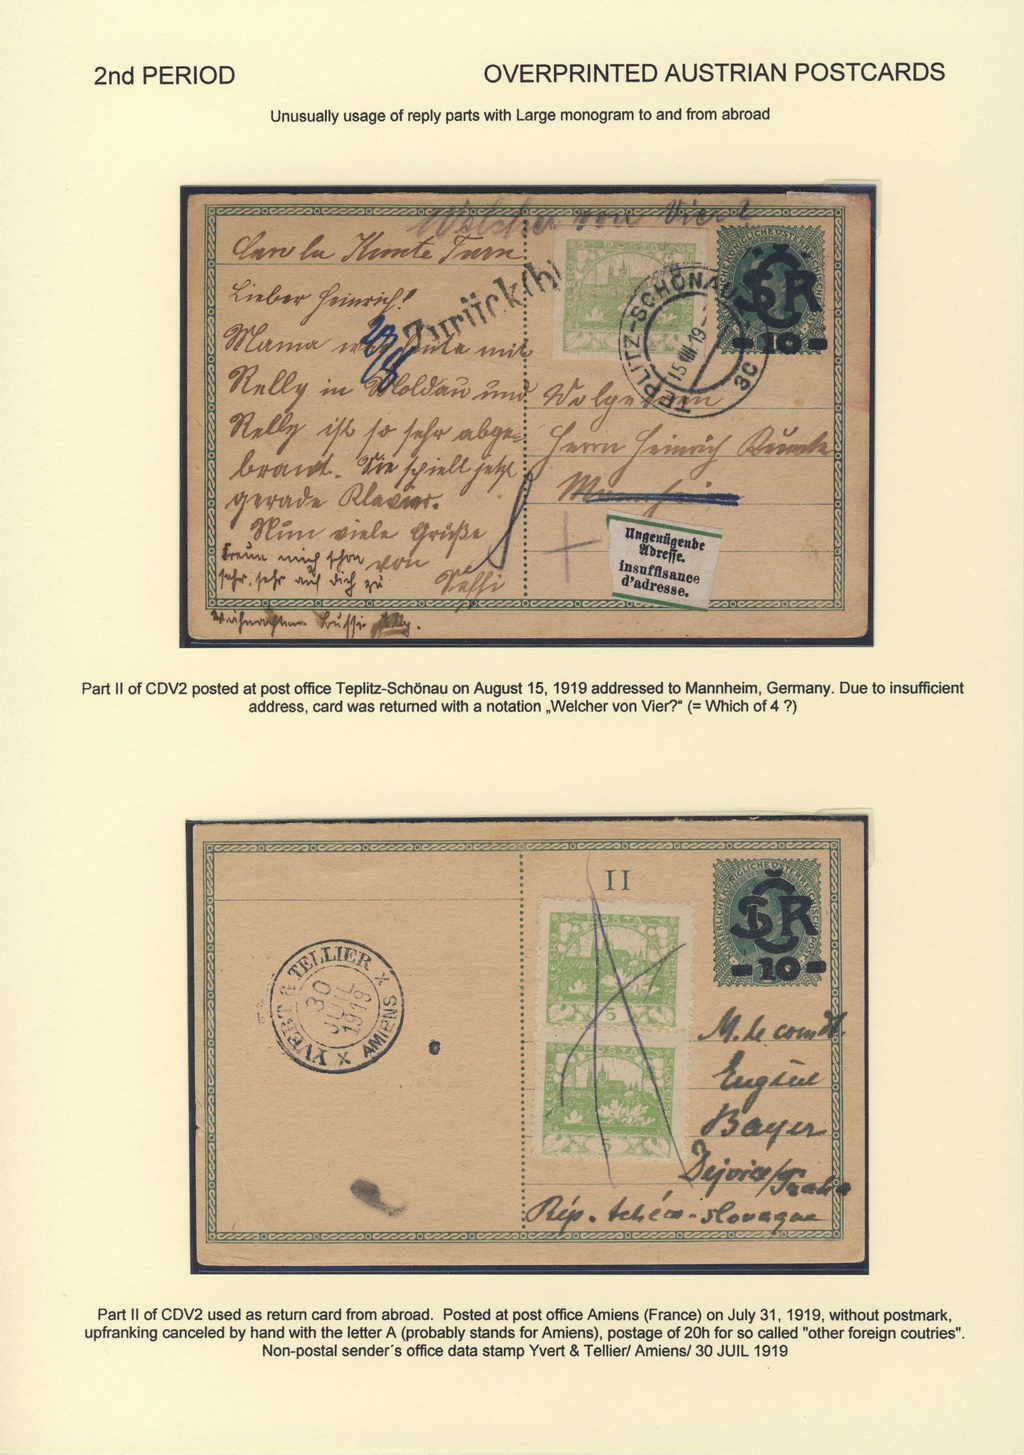 2nd PERIOD
OVERPRINTED AUSTRIAN POSTCARDS
Unusually usage of reply parts with Large monogram to and from abroad
Welcher von Vier?
Lieber Heinrich!
Mama
mit
Nelly in Moldau und
Nelly ist so sehr abge-
brannt. Sie spielt jetzt
gerade Klavier.
Nun viele Grüße
von
Freun mich schon
sehr, sehr auf dich zu
Weihnachten Bussi Nelly.
Zurück(b)
POŠTA
TEPLITZ-SCHÖNAU
15 VIII 19
3C
ČSR
-10-
Herrn Heinrich
Mannheim
Ungenügende
Adresse.
insuffisance
d'adresse.
Part II of CDV2 posted at post office Teplitz-Schönau on August 15, 1919 addressed to Mannheim, Germany. Due to insufficient
address, card was returned with a notation „Welcher von Vier?“ (= Which of 4 ?)
II
YVERT & TELLIER
30
JUIL
1919
x AMIENS x
POŠTA
ČESKO
5
POŠTA
ČESKO
5
KAISERLICHE KÖNIGLICHE ÖSTERREICHISCHE
ČSR
-10-
M. le comdt.
Eugène
Bayer
Dejvice/Praha
Rép. tchéco-slovaque
Part II of CDV2 used as return card from abroad. Posted at post office Amiens (France) on July 31, 1919, without postmark,
upfranking canceled by hand with the letter A (probably stands for Amiens), postage of 20h for so called "other foreign coutries".
Non-postal sender´s office data stamp Yvert & Tellier/ Amiens/ 30 JUIL 1919